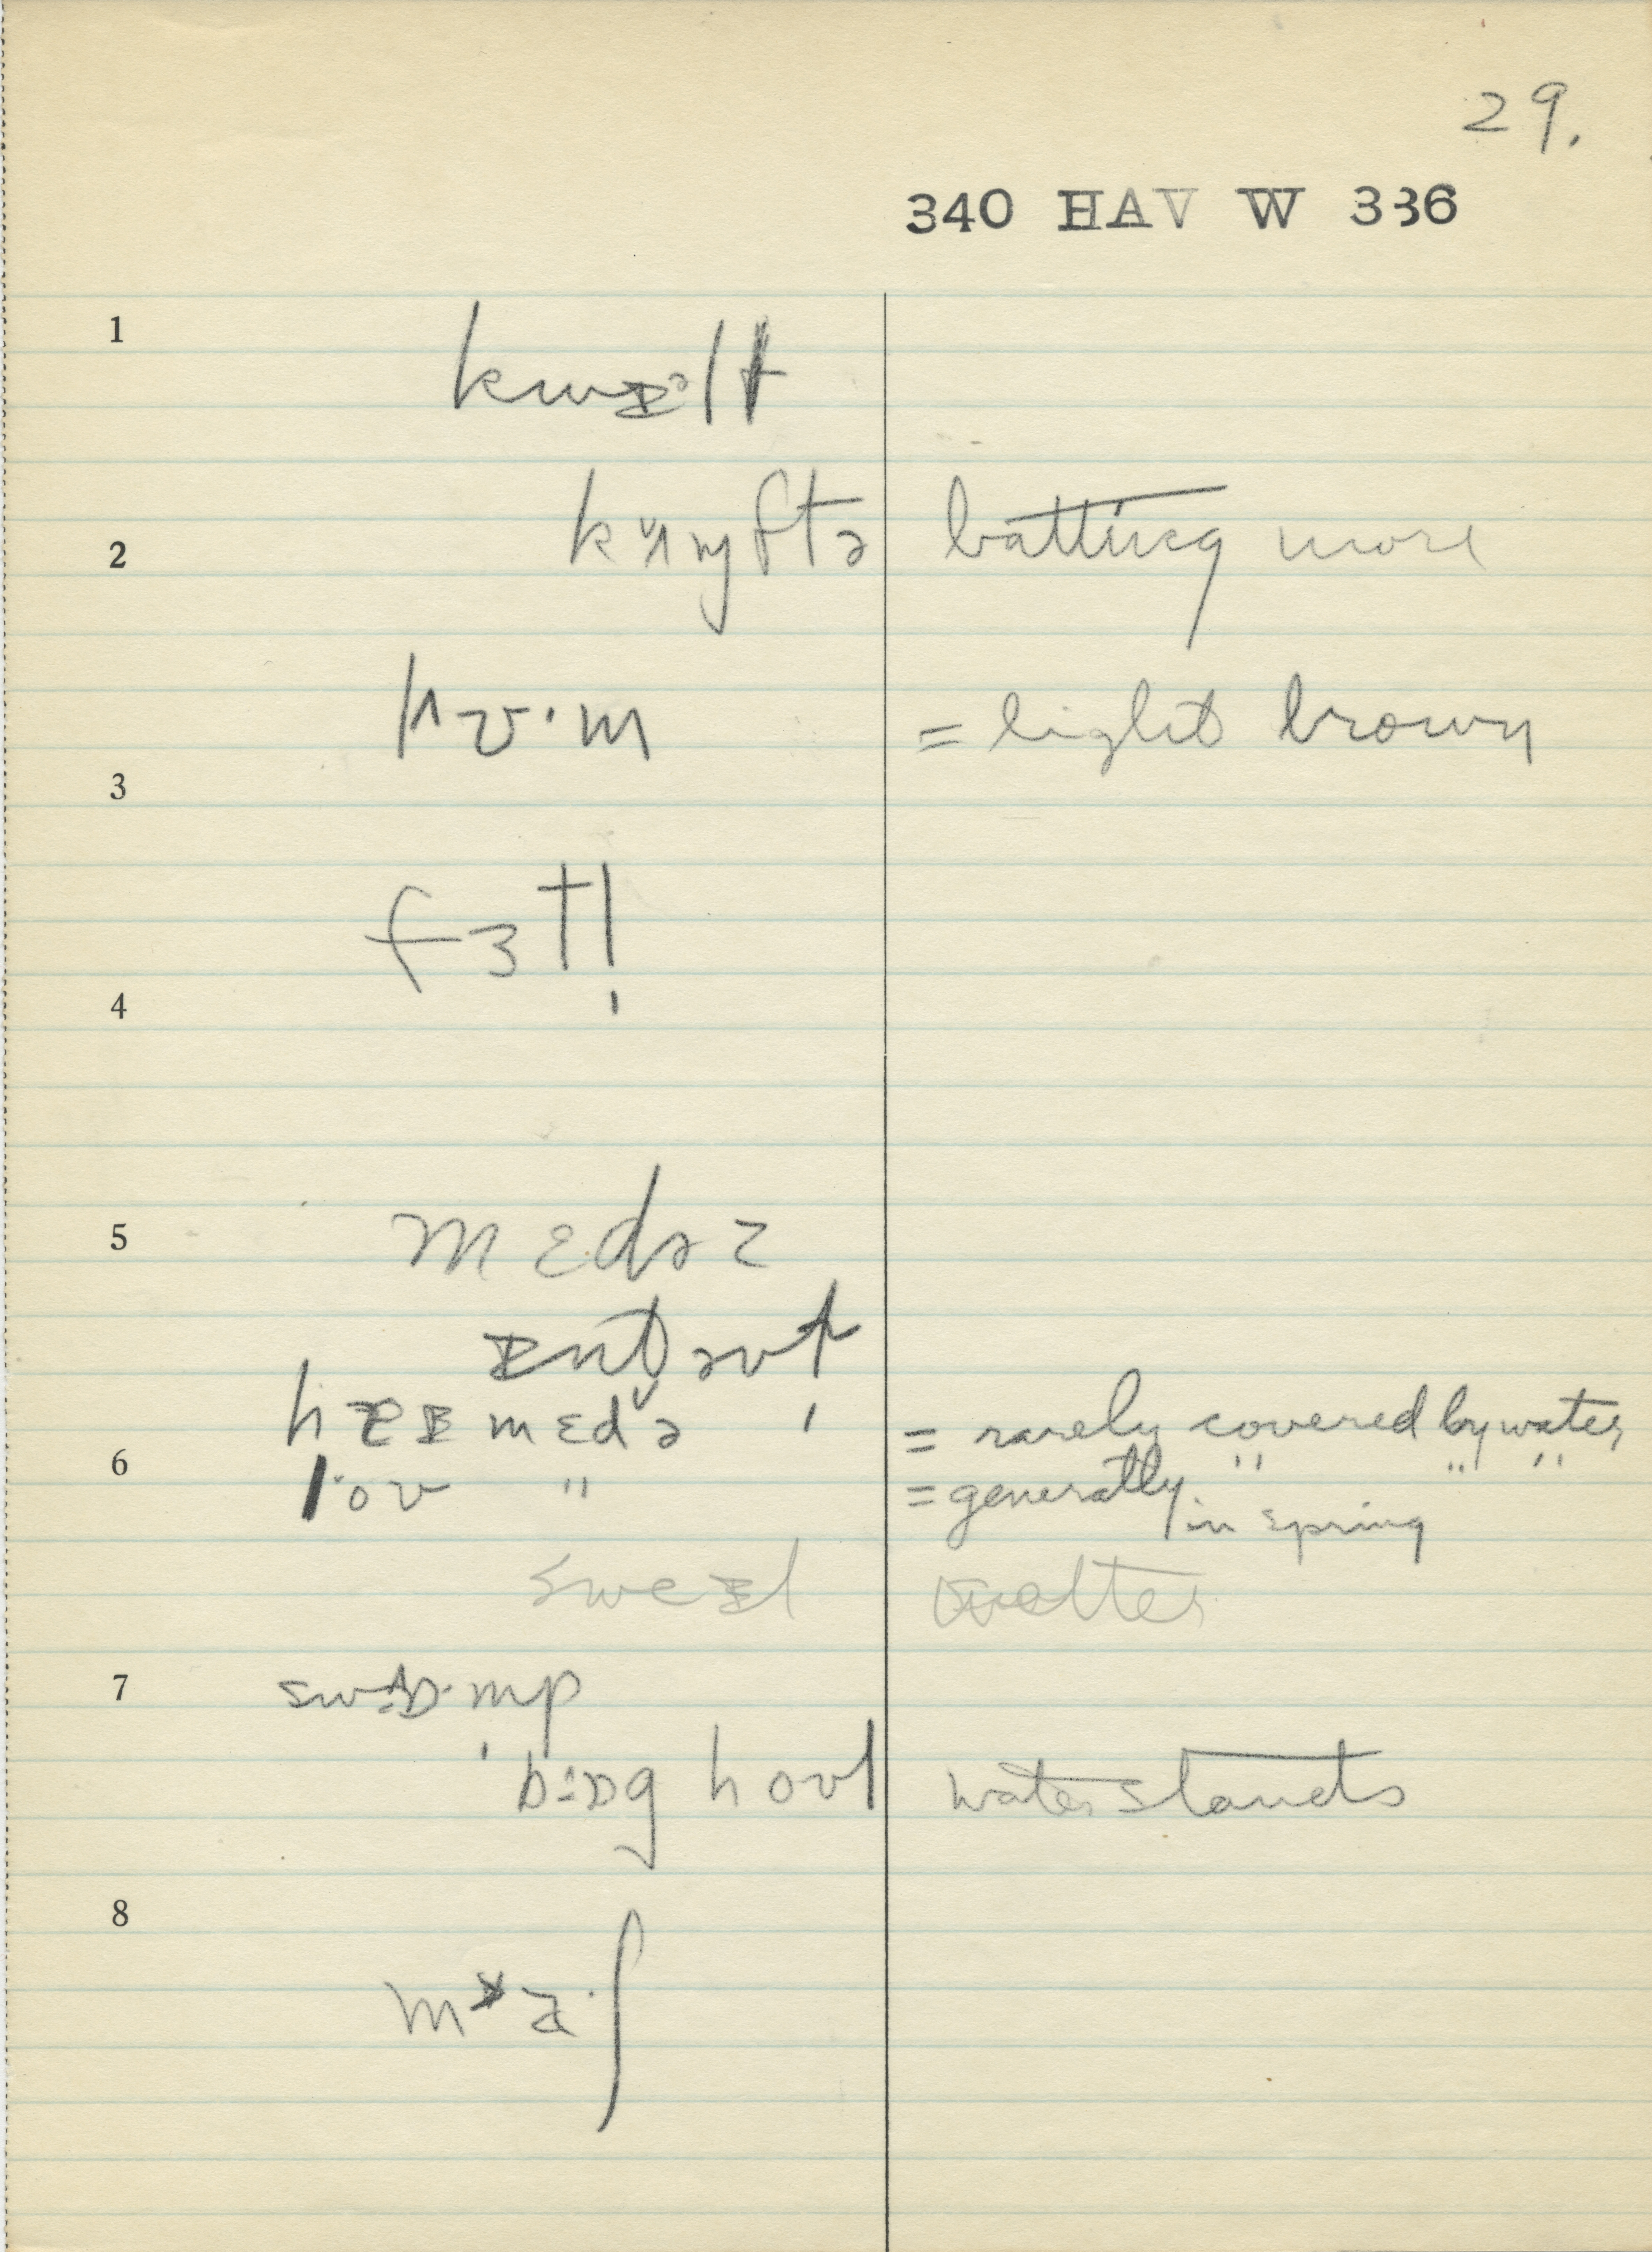 29.
340 HAV W 336
1
kwɪᵊlt
2 kʌmftə batting more
lʌʊ·m = light brown
3
fɜtl̩
4
5 mɛdəz
ɪntəvt
heɪ mɛdə = rarely covered by water
6
lov " = generally " " "
in spring
sweɪl wetter
7 swɒ·mp
bɒg hovl water stands
8
ma·ʃ